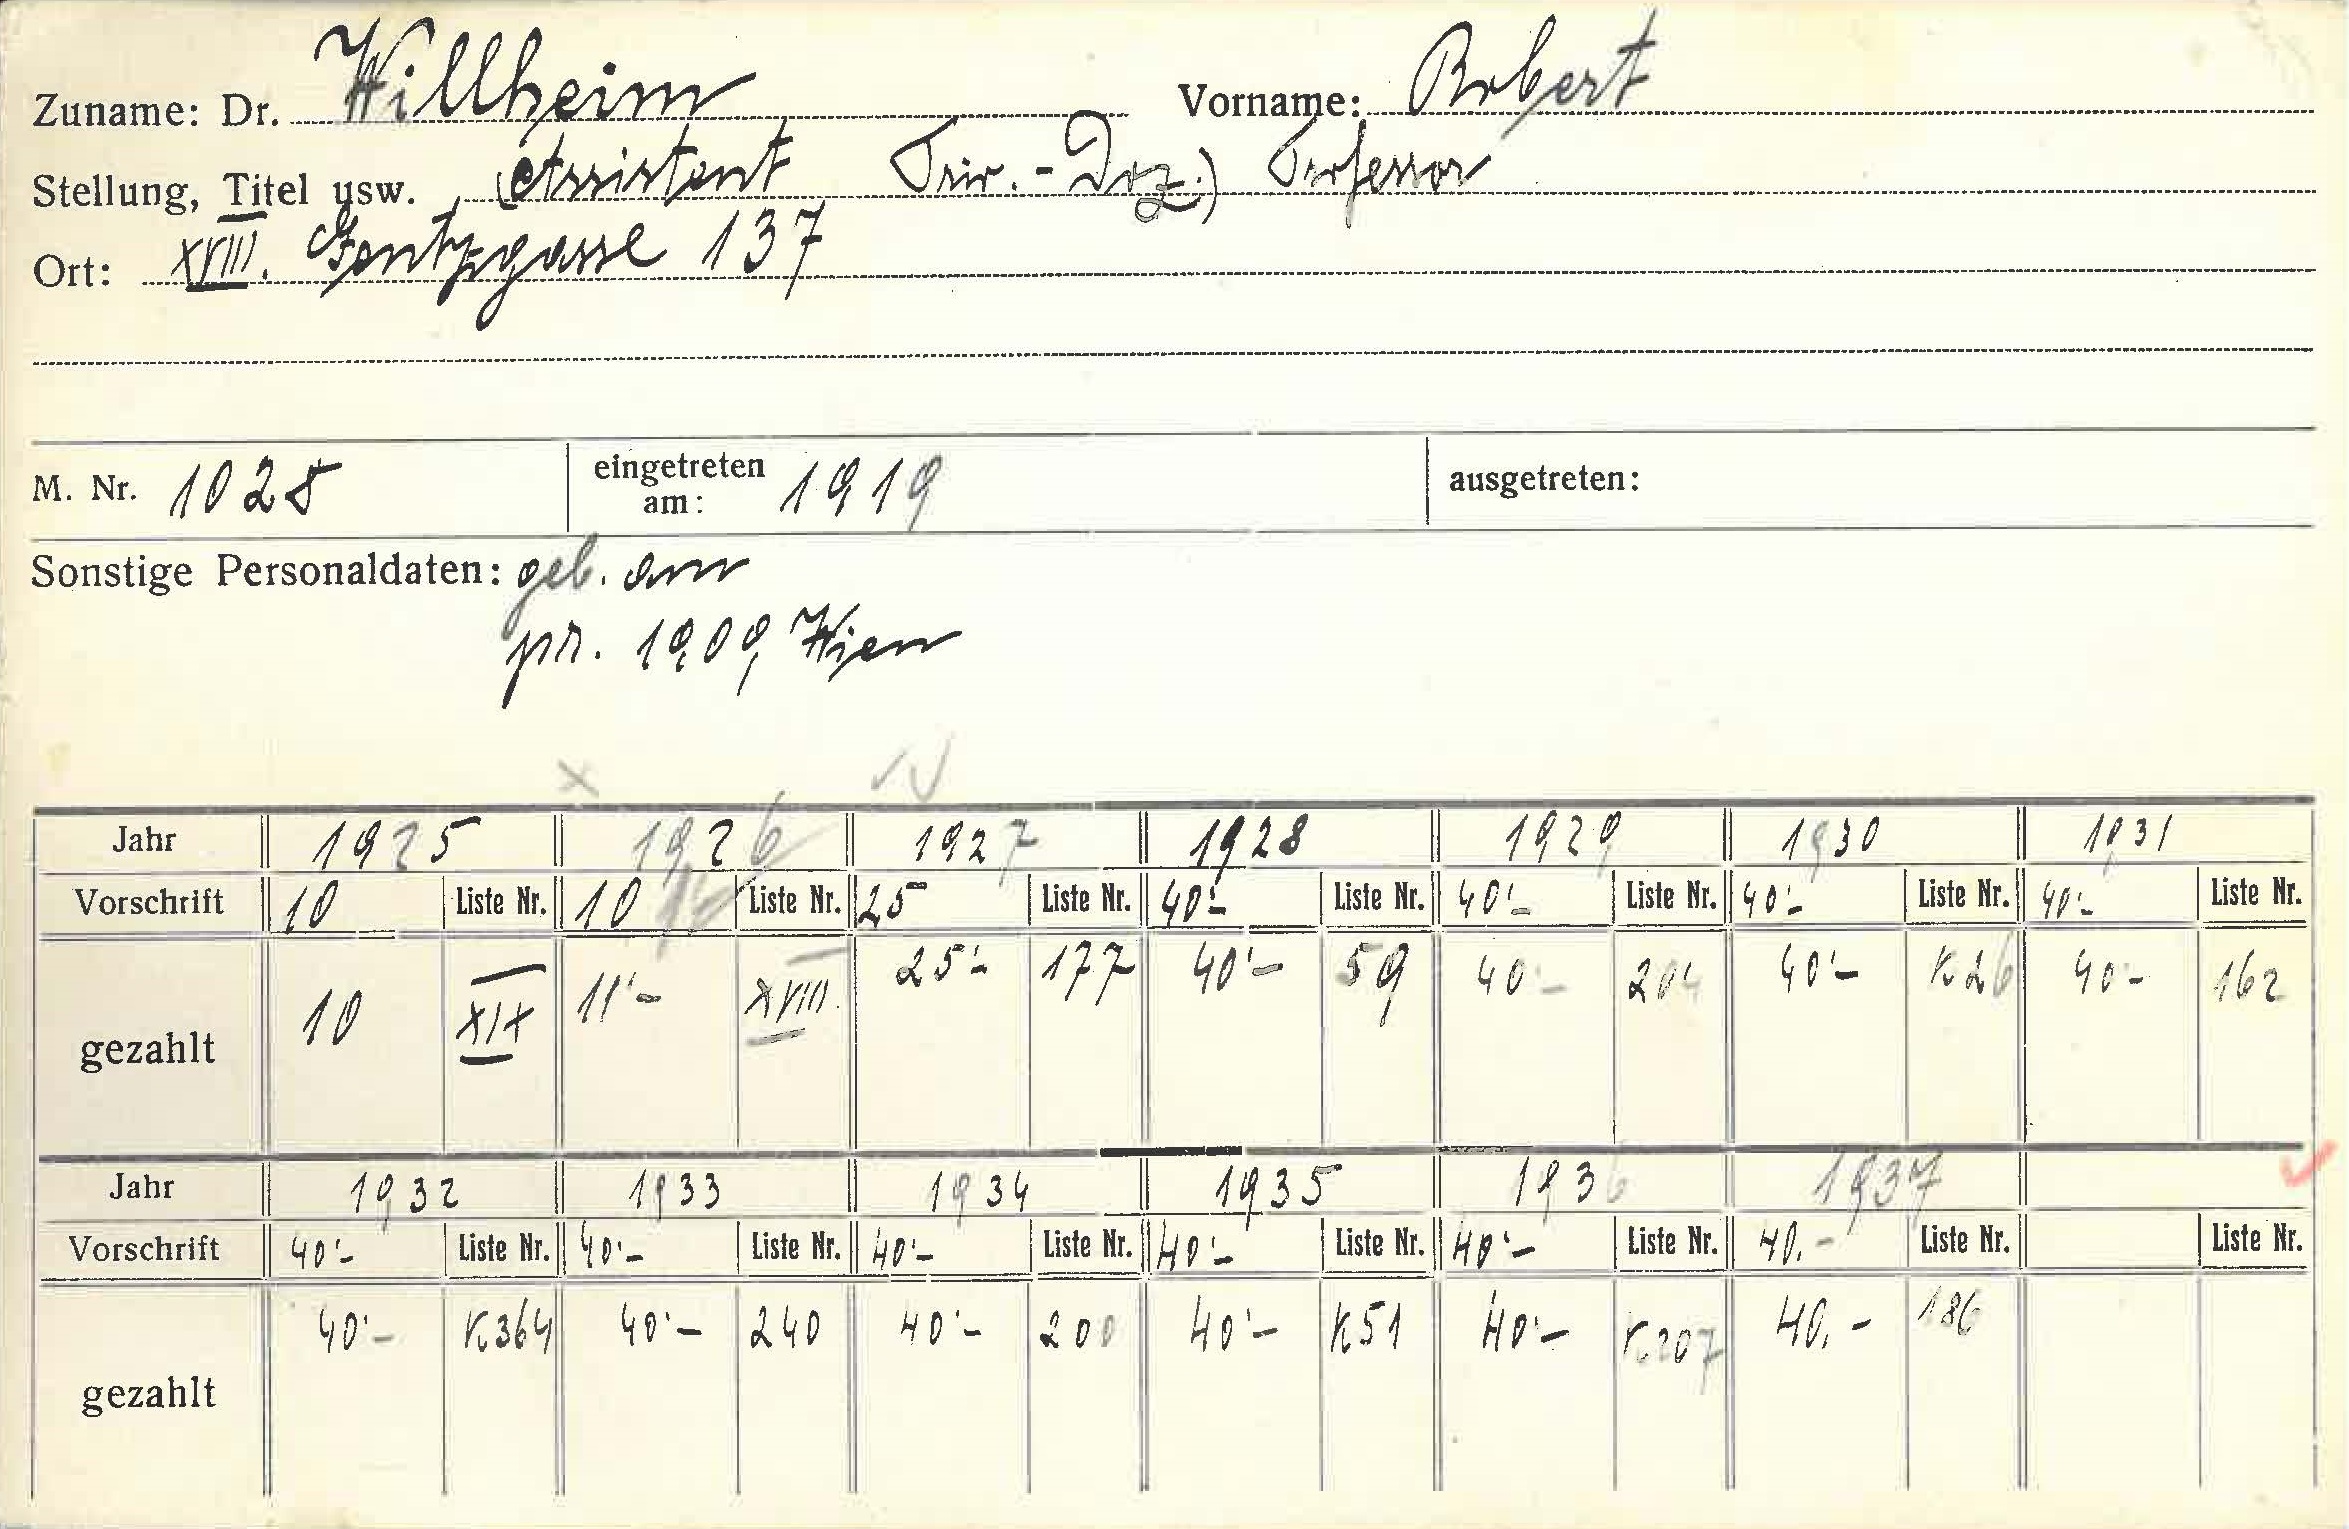 Zuname: Dr. Willheim Vorname: Robert
Stellung, Titel usw. (Assistent Priv.-Doz.) Professor
Ort: XVIII. Gentzgasse 137
M. Nr. 1028 eingetreten am: 1919 ausgetreten:
Sonstige Personaldaten: geb. am
pr. 1909 Wien
Jahr 1925 1926 1927 1928 1929 1930 1931
Vorschrift 10 Liste Nr. 10 Liste Nr. 25 Liste Nr. 40'- Liste Nr. 40'- Liste Nr. 40'- Liste Nr. 40'- Liste Nr.
gezahlt 10 XIX 11'- XVIII. 25'- 177 40'- 59 40'- 204 40'- K26 40- 162
Jahr 1932 1933 1934 1935 1936 1937
Vorschrift 40'- Liste Nr. 40'- Liste Nr. 40'- Liste Nr. 40'- Liste Nr. 40'- Liste Nr. 40.- Liste Nr. Liste Nr.
gezahlt 40'- K364 40'- 240 40'- 200 40'- K51 40'- K207 40.- 186